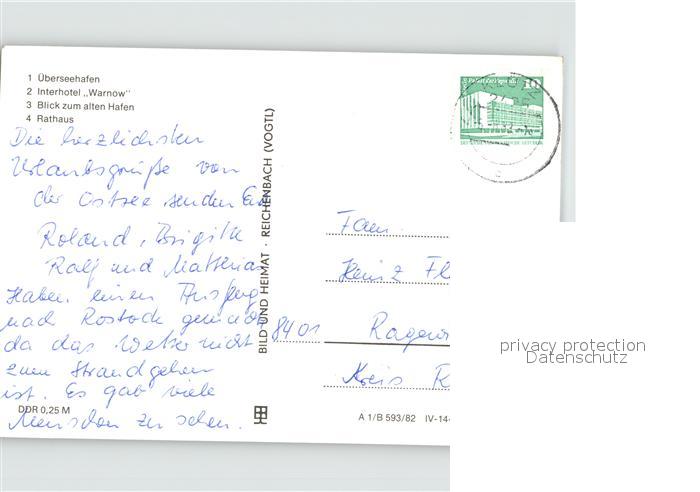 1 Überseehafen
2 Interhotel „Warnow"
3 Blick zum alten Hafen
4 Rathaus
Die herzlichsten
Urlaubsgrüße von
der Ostsee senden Euch
Roland, Brigitte
Ralf und Matthias
Haben einen Ausflug
nach Rostock gemacht
da das Wetter nicht
zum Strandgehen
ist. Es gab viele
Menschen zu sehen.
DDR 0,25 M
BILD UND HEIMAT · REICHENBACH (VOGTL)
10
Fam.
Heinz Fl
8401 Ragew
Kreis R
A 1/B 593/82 IV-14-
privacy protection
Datenschutz